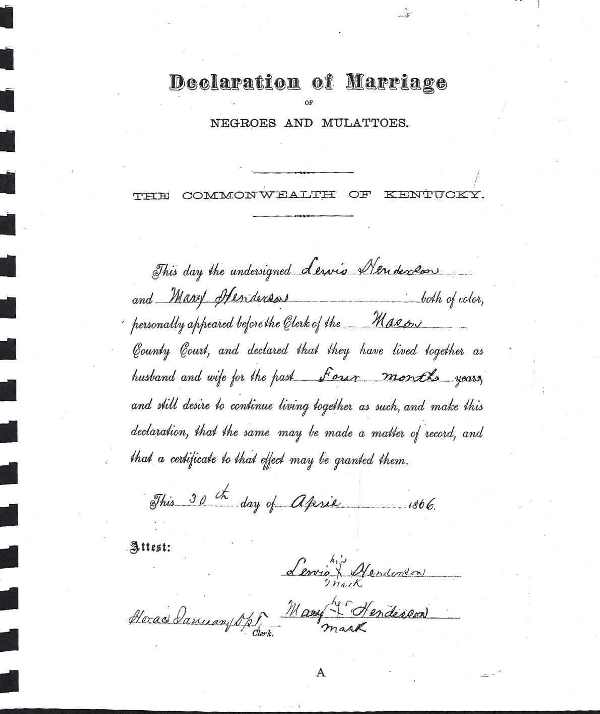 Declaration of Marriage
OF
NEGROES AND MULATTOES.
THE COMMONWEALTH OF KENTUCKY.
This day the undersigned Lewis Henderson
and Mary Henderson both of color,
personally appeared before the Clerk of the Mason
County Court, and declared that they have lived together as
husband and wife for the past Four months years,
and still desire to continue living together as such, and make this
declaration, that the same may be made a matter of record, and
that a certificate to that effect may be granted them.
This 30th day of April 1866.
Attest:
his
Lewis X Henderson
mark
her
Mary X Henderson
mark
Horace January
Clerk.
A